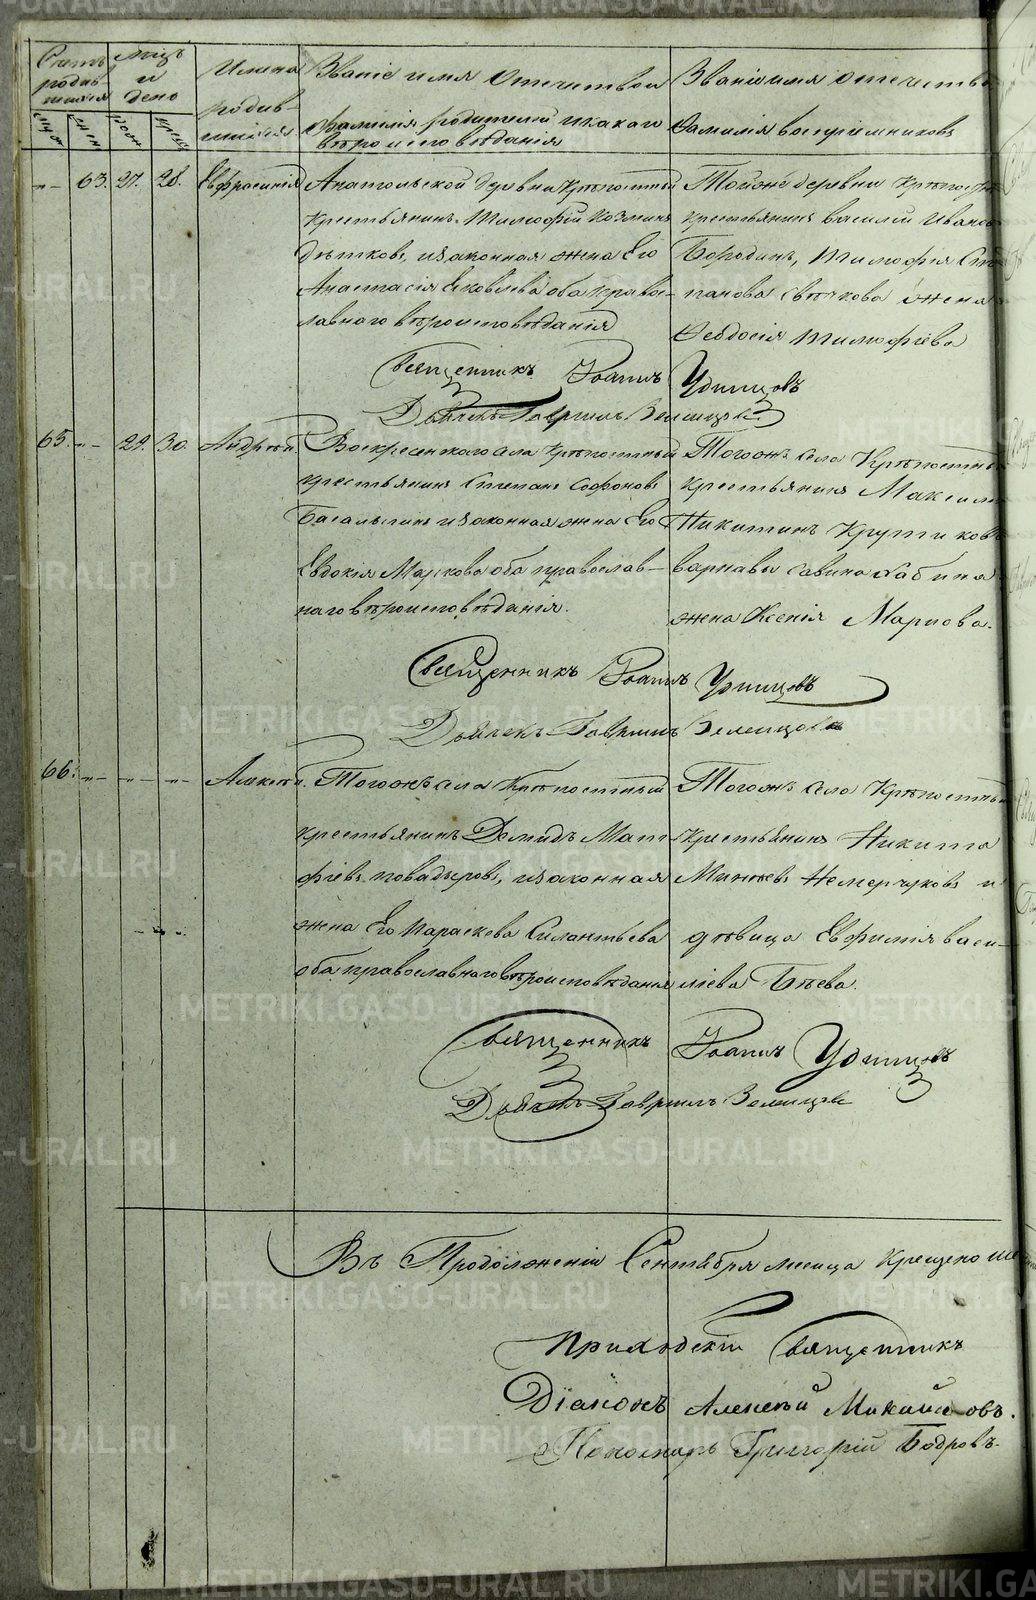 Счетъ родив шихся
мужъ
женъ
Мѣцъ и день
рож
крещ
Имена родив- шихся
Званiе имя Отчество и фамилiя родителей и какаго вѣроисповѣданiя
Званiе имя отчество фамилiя воспрiемниковъ
63. 27. 28. Евфросинiя
Анатольской деревни Крѣпостный
крестьянинъ Тимофiй Козминъ
Дѣтковъ, и законная жена Его
Анастасiя Яковлева оба право-
лавнаго вѣроисповѣданiя
Тойже деревни Крѣпост
крестьянинъ василiй Ивановъ
Бородинъ, Тимофiя Сте
панова Свѣчкова жена
Феодосiя Тимофiева
Священникъ Iоаннъ Удинцовъ
Дьячекъ Гаврiилъ Земляцовъ
65. 29. 30. Андрей.
Воскресенскаго села Крѣпостный
крестьянинъ Степанъ Софоновъ
и законная жена Его
Евдокiя Маркова оба православ-
наго вѣроисповѣданiя.
Тогожъ села Крѣпостны
крестьянинъ Максимъ
Никитинъ Крутиковъ
варнавы Савина Бабина
жена Ксенiя Маркова.
Священникъ Iоаннъ Удинцовъ
Дьячекъ Гаврiилъ
66. Алексѣй.
Тогожъ села Крѣпостный
крестьянинъ Демидъ Мат-
фiевъ Повадыровъ, и законная
жена Его Параскева Силантьева
оба православнаго вѣроисповѣданiя
Тогожъ села Крѣпостны
Крестьянинъ Никита
Минѣевъ Немерчуковъ и
дѣвица Евфимiя васи-
лiева Бѣева.
Священникъ Iоаннъ Удинцовъ
Дьячекъ Гаврiилъ
Въ Продолженiи Сентября месяца Крещено
Приходскiй Священникъ
Дiаконъ Алексѣй
Пономарь Григорiй Бодровъ.
METRIKI.GASO-URAL.RU